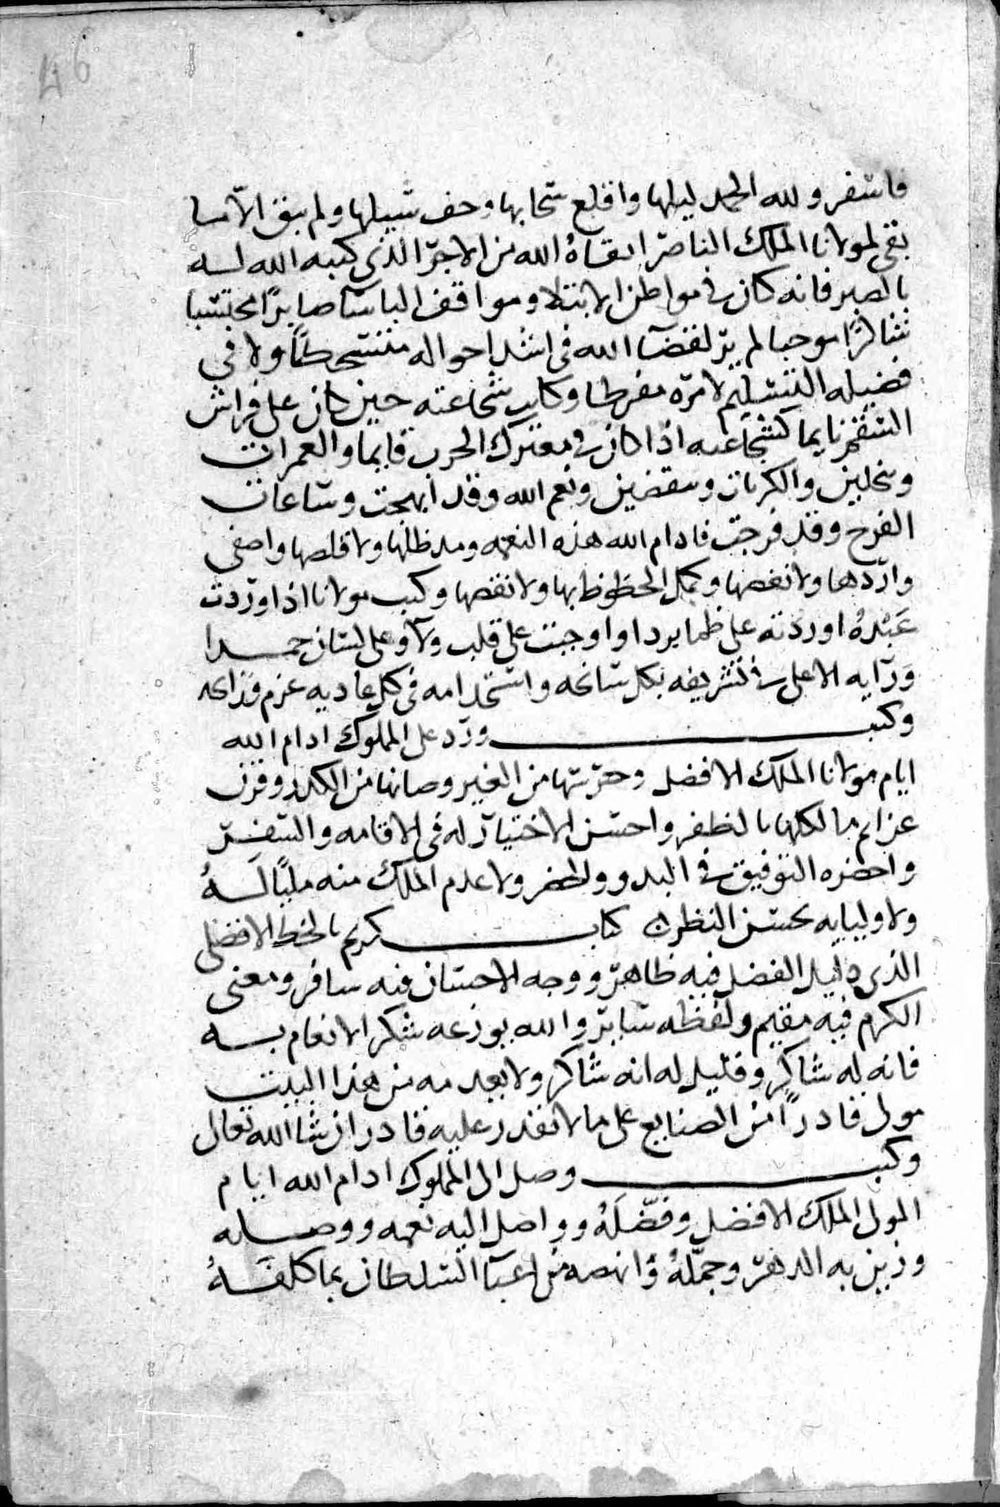 46
فاسفر ولله الحمد ليلها واقلع سحابها وخف سبيلها ولم يبق الا ما
بقى لمولانا الملك الناصر ابقاه الله من الاجر الذى كتبه الله له
بالصبر فانه كان فى مواطن الابتلا ومواقف الباسا صابرا محتسبا
شاكرا موجبا لم ير لقضا الله فى اشد احواله متسخطا ولا فى
فضيله التسليم لامره مفرطا وكانت شجاعته حين كان على فراش
السقم نايما كشجاعته اذا كان فى معترك الحرب قايما والغمرات
وينجلين والكربات وينقضين ونعم الله وقد ابهجت وساعات
الفرح وقد فرجت فادام الله هذه النعمه ومد ظلها ولا قلصها واصفى
واردها ولا نغصها وكمل الحظوظ بها ولا نقصها وكتب مولانا اذا وردت
عبده اوردته على ظما بردا واوجبت على قلب ولا وعلى لسان حمدا
ورايه الاعلى فى تشريفه بكل سانحه واستخدامه فى كل غاديه عزم ورايحه
وكتب ورد على المملوك ادام الله
ايام مولانا الملك الافضل وحرسها من الغير وصانها من الكدر وقرن
عزايم مالكها بالظفر واحسن الاختيار له فى الاقامه والسفر
واحضره التوفيق فى البدو والحضر ولا عدم الملك منه مليا له
ولاوليايه بحسن النظر كتاب كريم بالخط الافضلى
الذى دليل الفضل فيه ظاهر ووجه الاحسان فيه سافر ومعنى
الكرم فيه مقيم ولفظه ساير والله يوزعه شكر الانعام به
فانه له شاكر وقليل له انه شاكر ولا يعدمه من هذا البيت
مولى قادرا من الصنايع على ما لا تقدر عليه قادر ان شا الله تعالى
وكتب وصل الى المملوك ادام الله ايام
المولى الملك الافضل وفضله وواصل اليه نعمه ووصله
وزين به الدهر وجمله وانهضه من اعبا السلطان بما كلفه